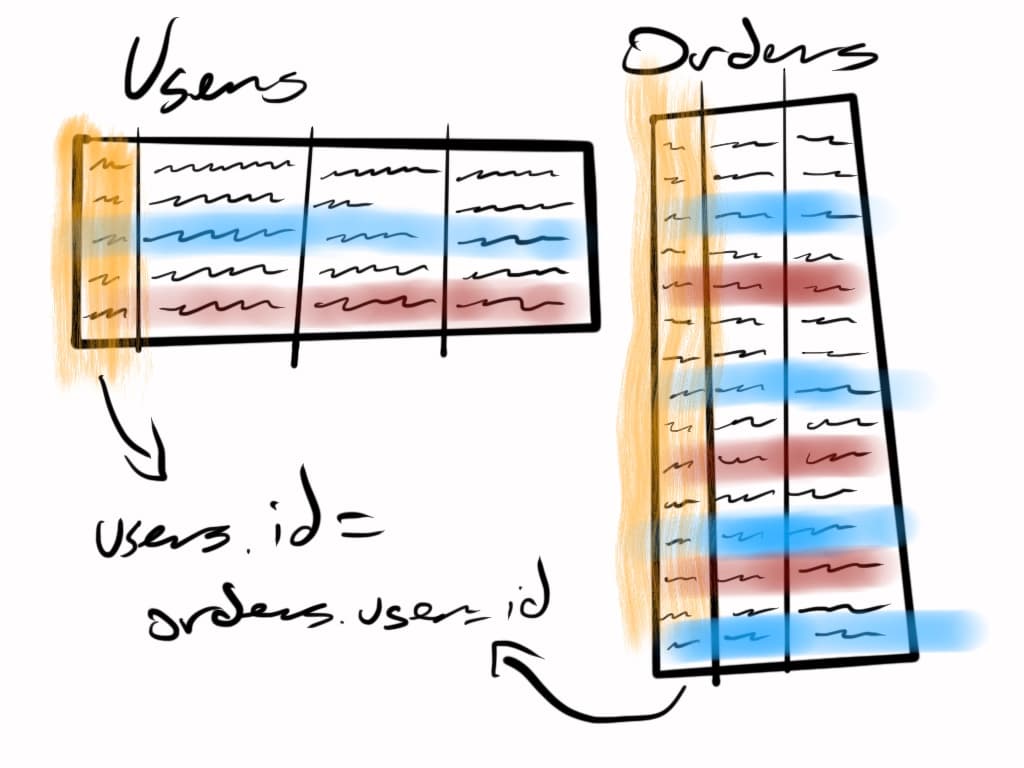 Users
Orders
users.id =
orders.user_id